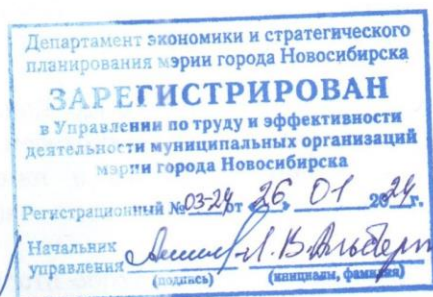 Департамент экономики и стратегического
планирования мэрии города Новосибирска
ЗАРЕГИСТРИРОВАН
в Управлении по труду и эффективности
деятельности муниципальных организаций
мэрии города Новосибирска
Регистрационный № 03-24 от «26» 01 2024г.
Начальник
управления Л.В.
(подпись) (инициалы, фамилия)